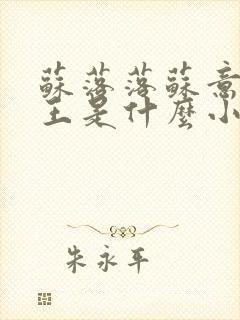 蘇落落蘇意
主是什麼小
朱永平